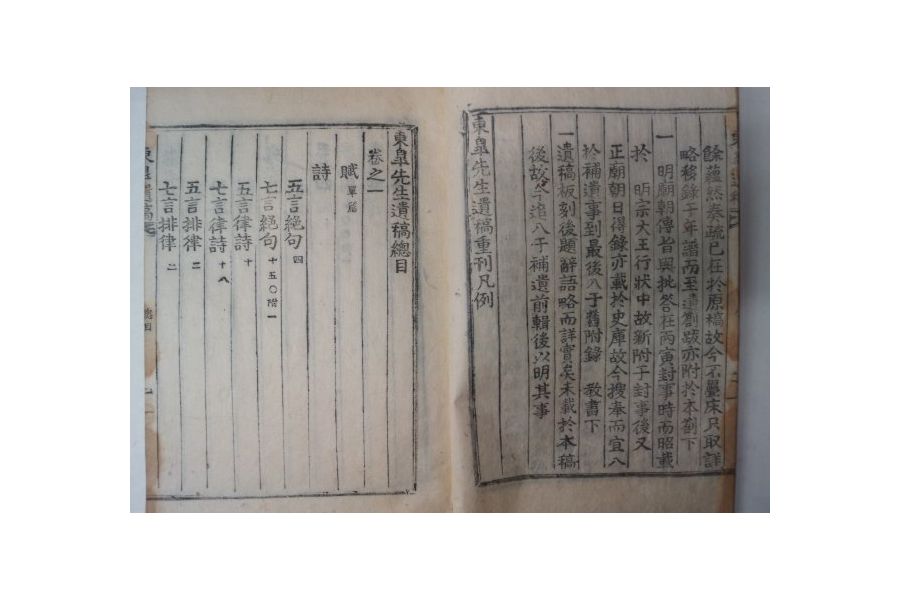 餘蘊然奏疏已在於原稿故今不疊床只取詳
略移錄于年譜而至遺劄跋亦附於本劄下
一 明廟朝傳旨與批答在丙寅封事時而昭載
於 明宗大王行狀中故新附于封事後又
正廟朝日得錄亦載於史庫故今搜奉而宜入
於補遺事到最後入于舊附錄 教書下
一遺稿板刻後題辭語略而詳實矣未載於本稿
後故今追入于補遺前輯後以明其事
東皐先生遺稿重刊凡例
東皐先生遺稿總目
卷之一
賦 單篇
詩
五言絕句 四
七言絕句 十五○附一
五言律詩 十
七言律詩 十八
五言排律 二
七言排律 二
東皐遺稿